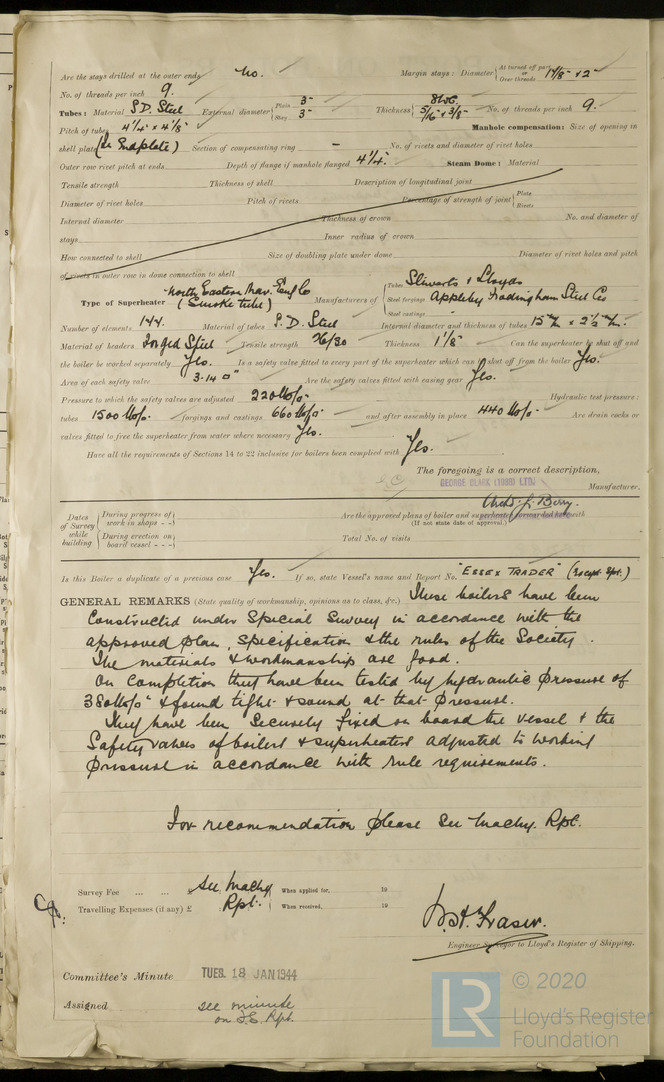 Are the stays drilled at the outer ends No. Margin stays: Diameter { At turned off part or Over threads 1 7/8" + 2"
No. of threads per inch 9.
Tubes: Material S.D. Steel External diameter { Plain 3" Stay 3" Thickness { 8WG. 5/16" + 3/8" No. of threads per inch 9.
Pitch of tubes 4 1/4" x 4 1/8" Manhole compensation: Size of opening in
shell plate (In Endplate) Section of compensating ring - No. of rivets and diameter of rivet holes
Outer row rivet pitch at ends Depth of flange if manhole flanged 4 1/4". Steam Dome: Material
Tensile strength Thickness of shell Description of longitudinal joint
Diameter of rivet holes Pitch of rivets Percentage of strength of joint { Plate Rivets
Internal diameter Thickness of crown No. and diameter of
stays Inner radius of crown
How connected to shell Size of doubling plate under dome Diameter of rivet holes and pitch
of rivets in outer row in dome connection to shell
Type of Superheater North Eastern Mar. Eng. Co (Smoke tube) Manufacturers of { Tubes Stewarts & Lloyds
Steel forgings Appleby Frodingham Steel Co
Steel castings -
Number of elements 144. Material of tubes S.D. Steel Internal diameter and thickness of tubes 15 m/m x 2 1/2 m/m.
Material of headers Forged Steel Tensile strength 26/30 Thickness 1 1/8" Can the superheater be shut off and
the boiler be worked separately Yes. Is a safety valve fitted to every part of the superheater which can be shut off from the boiler Yes.
Area of each safety valve 3.14 □" Are the safety valves fitted with easing gear Yes.
Pressure to which the safety valves are adjusted 220 lbs/□" Hydraulic test pressure:
tubes 1500 lbs/□" forgings and castings 660 lbs/□" and after assembly in place 440 lbs/□" Are drain cocks or
valves fitted to free the superheater from water where necessary Yes.
Have all the requirements of Sections 14 to 22 inclusive for boilers been complied with Yes.
The foregoing is a correct description,
GEORGE CLARK (1938) LTD.
Manufacturer.
Dates of Survey while building { During progress of work in shops - - During erection on board vessel - - -
Are the approved plans of boiler and superheater forwarded herewith
(If not state date of approval.)
Total No. of visits
Is this Boiler a duplicate of a previous case Yes. If so, state Vessel's name and Report No. "ESSEX TRADER"
GENERAL REMARKS (State quality of workmanship, opinions as to class, &c.) These boilers have been
constructed under Special Survey in accordance with the
approved plan, specification & the rules of the Society.
The materials & workmanship are good.
On completion they have been tested by hydraulic pressure of
380 lbs/□" & found tight & sound at that pressure.
They have been securely fixed on board the vessel & the
Safety valves of boilers & superheaters adjusted to working
pressure in accordance with rule requirements.
For recommendation please see Machy. Rpt.
Survey Fee ... ... £ See Machy Rpt. When applied for, 19
Travelling Expenses (if any) £ When received, 19
Fraser.
Engineer Surveyor to Lloyd's Register of Shipping.
Committee's Minute TUES. 18 JAN 1944
Assigned see minute
on F.E. Rpt.
LR © 2020
Lloyd's Register
Foundation